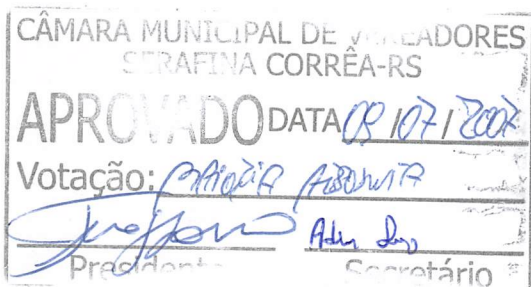 CÂMARA MUNICIPAL DE VEREADORES
SERAFINA CORRÊA-RS
APROVADO DATA 09 / 07 / 2007
Votação: MAIORIA ABSOLUTA
Presidente Secretário